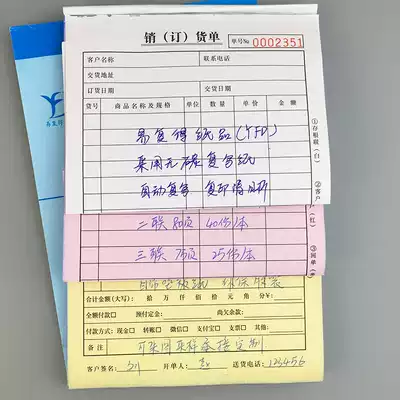 销（订）货单
单号№ 0002351
客户名称 联系电话
交货地址
订货日期 交货日期
货号 商品名称及规格 单位 数量 单价 金额
易复得纸品（YFD）
采用无碳复写纸
自动复写 复印清晰
二联 80页 40份/本
三联 75页 25份/本
合计金额(大写): 拾 万 仟 佰 拾 元 角 分 ¥:
全额付款 预付定金: 尚欠余款:
付款方式: 现金 转账 微信 支付宝 支票 日期:
备注
客户签名: 开单人: 送货电话: 123456
①存根联(白)
②客户
(红)
③回单